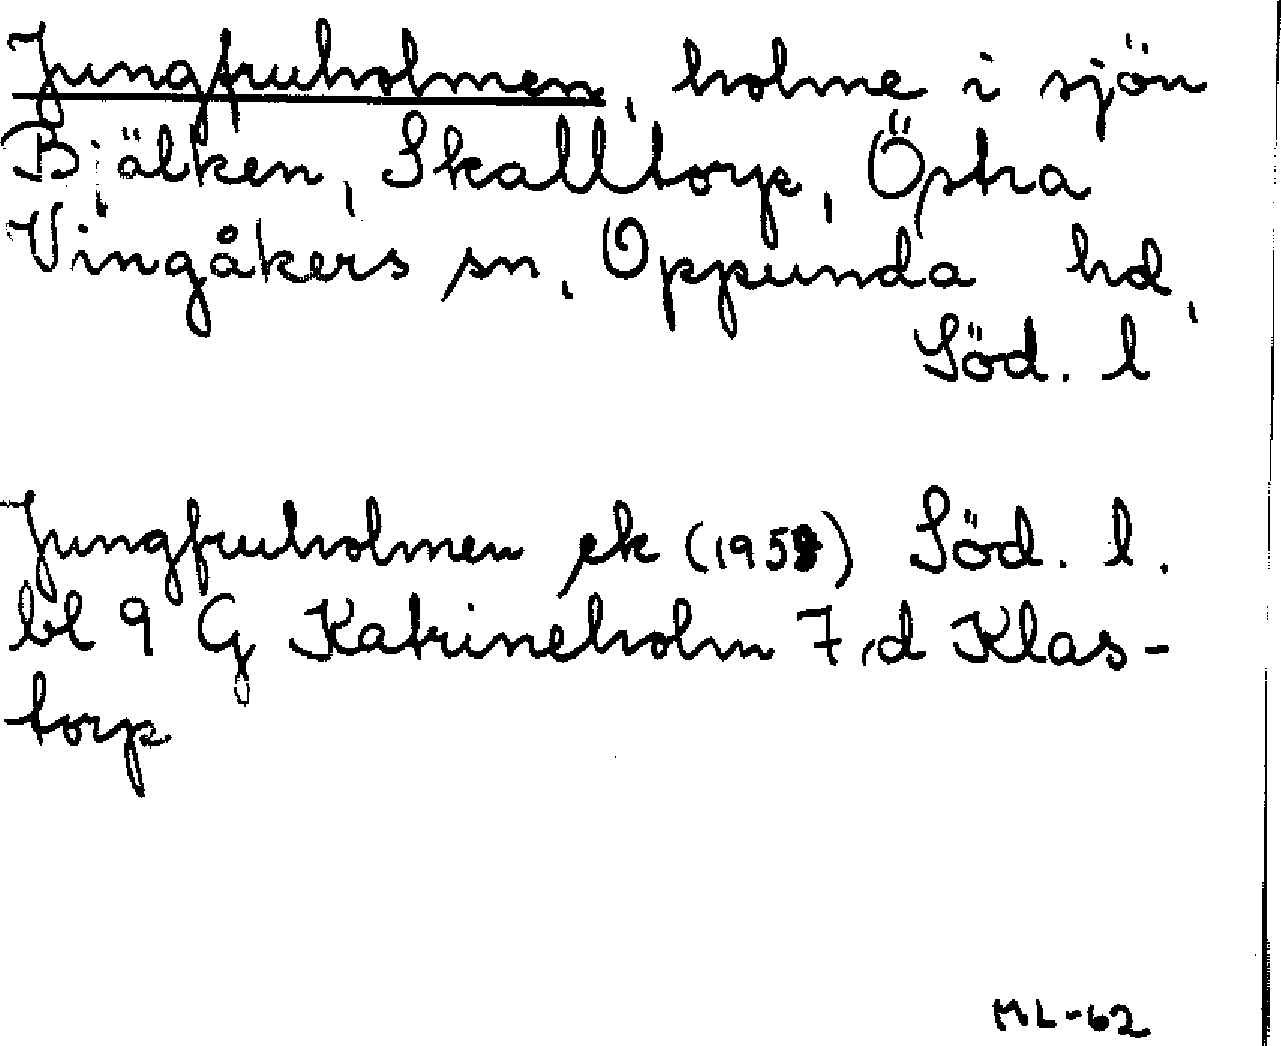 Jungfruholmen, holme i sjön
Bjälken, Skalltorp, Östra
Vingåkers sn, Oppunda hd,
Söd. l
Jungfruholmen ek Söd. l.
bl 9 G Katrineholm 7 d Klas-
torp
ML-62